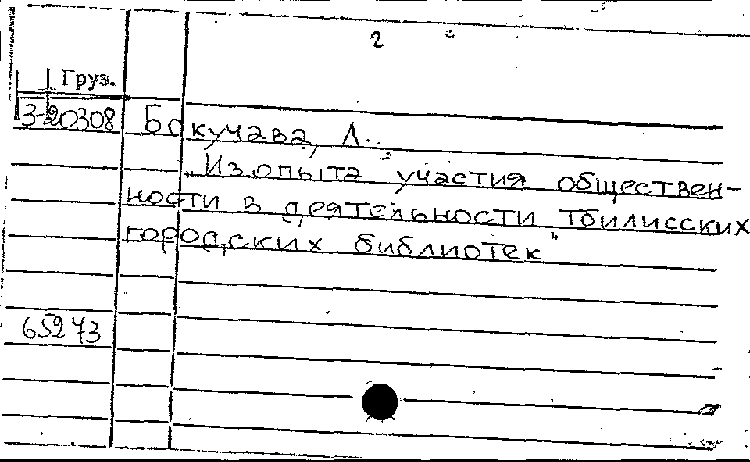 2
Груз.
3-20308 Бокучава, Л.
"Из опыта участия обществен-
ности в деятельности Тбилисских
городских библиотек"
65273